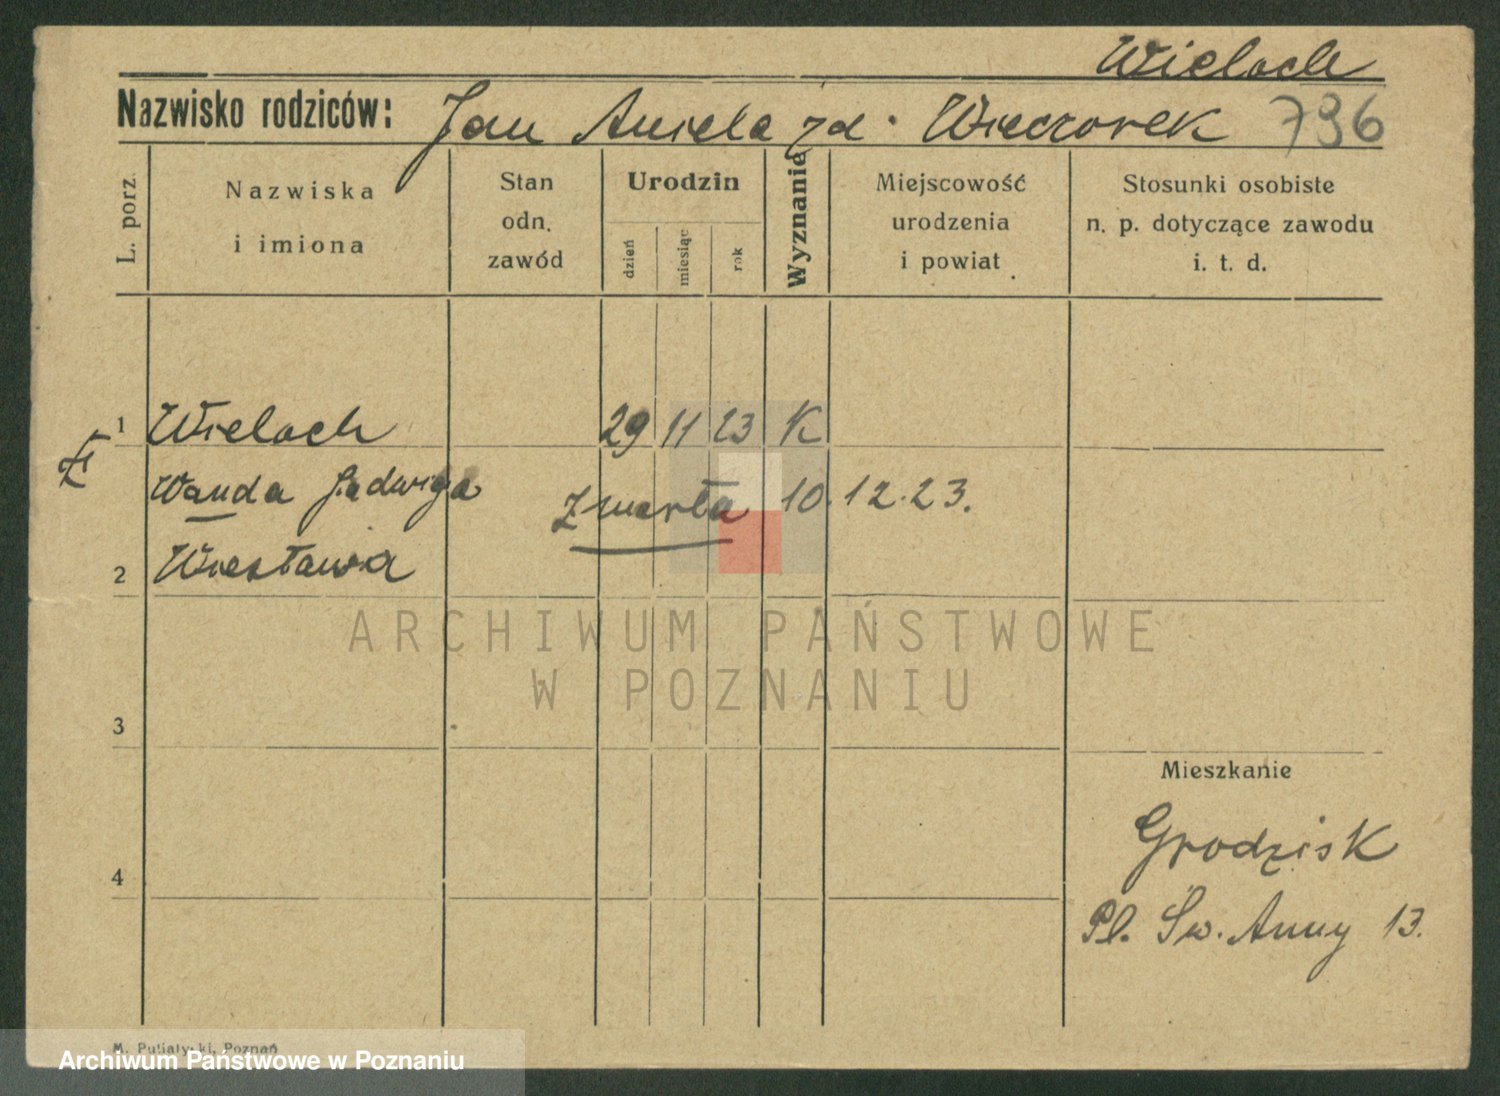 Wieloch
Nazwisko rodziców: Jan Aniela zd. Wieczorek 796
L. porz.
Nazwiska
i imiona
Stan
odn.
zawód
Urodzin
dzień
miesiąc
rok
Wyznanie
Miejscowość
urodzenia
i powiat
Stosunki osobiste
n. p. dotyczące zawodu
i. t. d.
1 Wieloch 29 11 23 K
Wanda Jadwiga Zmarła 10.12.23.
2 Wiesława
ARCHIWUM PAŃSTWOWE
W POZNANIU
3
Mieszkanie
Grodzisk
4
Pl. Św. Anny 13.
M. Putiatycki, Poznań
Archiwum Państwowe w Poznaniu